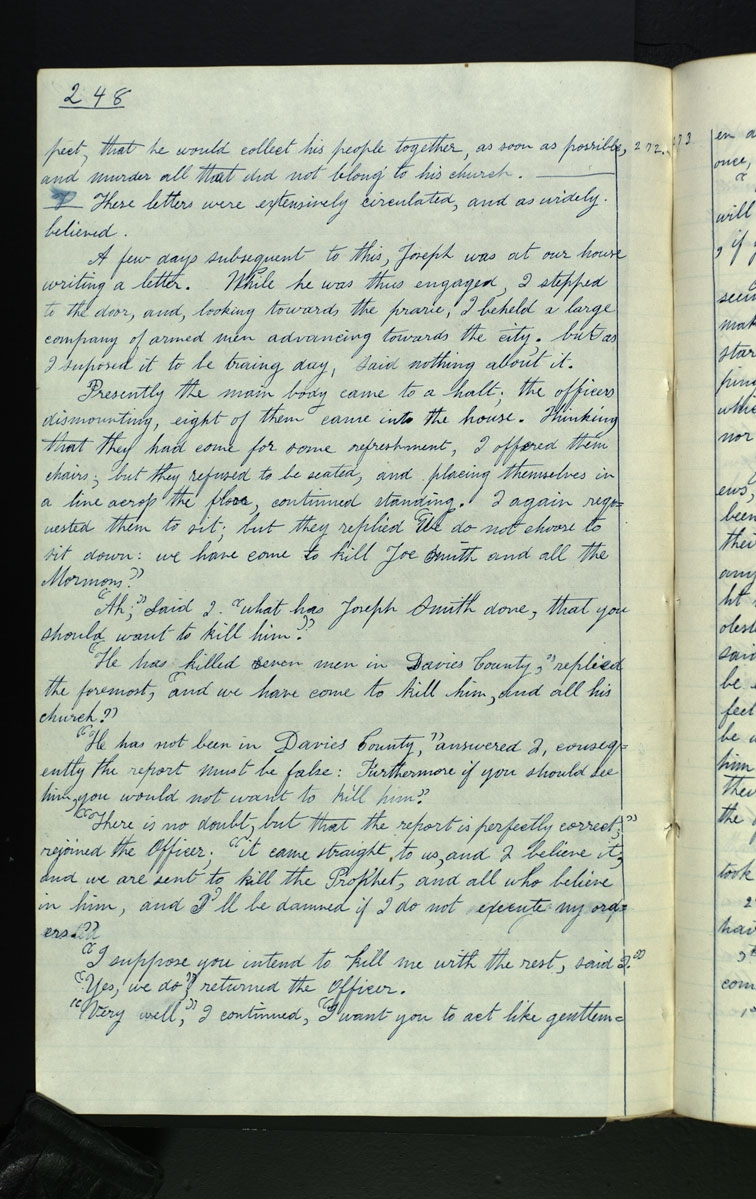 248
pect, that he would collect his people together, as soon as possible, 272. 273
and murder all that did not belong to his church.
These letters were extensively circulated, and as widely.
believed.
A few days subsequent to this, Joseph was at our house
writing a letter. While he was thus engaged, I stepped
to the door, and, looking towards the prarie, I beheld a large
company of armed men advancing towards the city. but as
I suposed it to be traing day, said nothing about it.
Presently the main body came to a halt; the officers
dismounting, eight of them came into the house. Thinking
that they had come for some refreshment, I offered them
chairs; but they refused to be seated, and placing themselves in
a line across the floor, continued standing. I again requ=
uested them to sit; but they replied "We do not choose to
sit down: we have come to kill Joe Smith and all the
Mormons."
"Ah," said I. "what has Joseph Smith done, that you
should want to kill him?"
"He has killed seven men in Davies County," replied
the foremost, "and we have come to kill him, and all his
church."
"He has not been in Davies County," answered I, "conseq=
ently the report must be false: Furthermore if you should see
him, you would not want to kill him."
"There is no doubt, but that the report is perfectly correct;"
rejoined the Officer; "it came straight to us, and I believe it;
and we are sent to kill the Prophet, and all who believe
in him, and I'll be damned if I do not execute my ord=
ers."
"I suppose you intend to kill me with the rest, said I."
"Yes, we do" returned the Officer.
"Very well," I continued, "I want you to act like gentlem=
en a
once,
will
, if y
mak
star
ping
whic
nor
ews,
been
thei
any
ht
olest
said
be
feel
be
him
the
took
2
hav
com